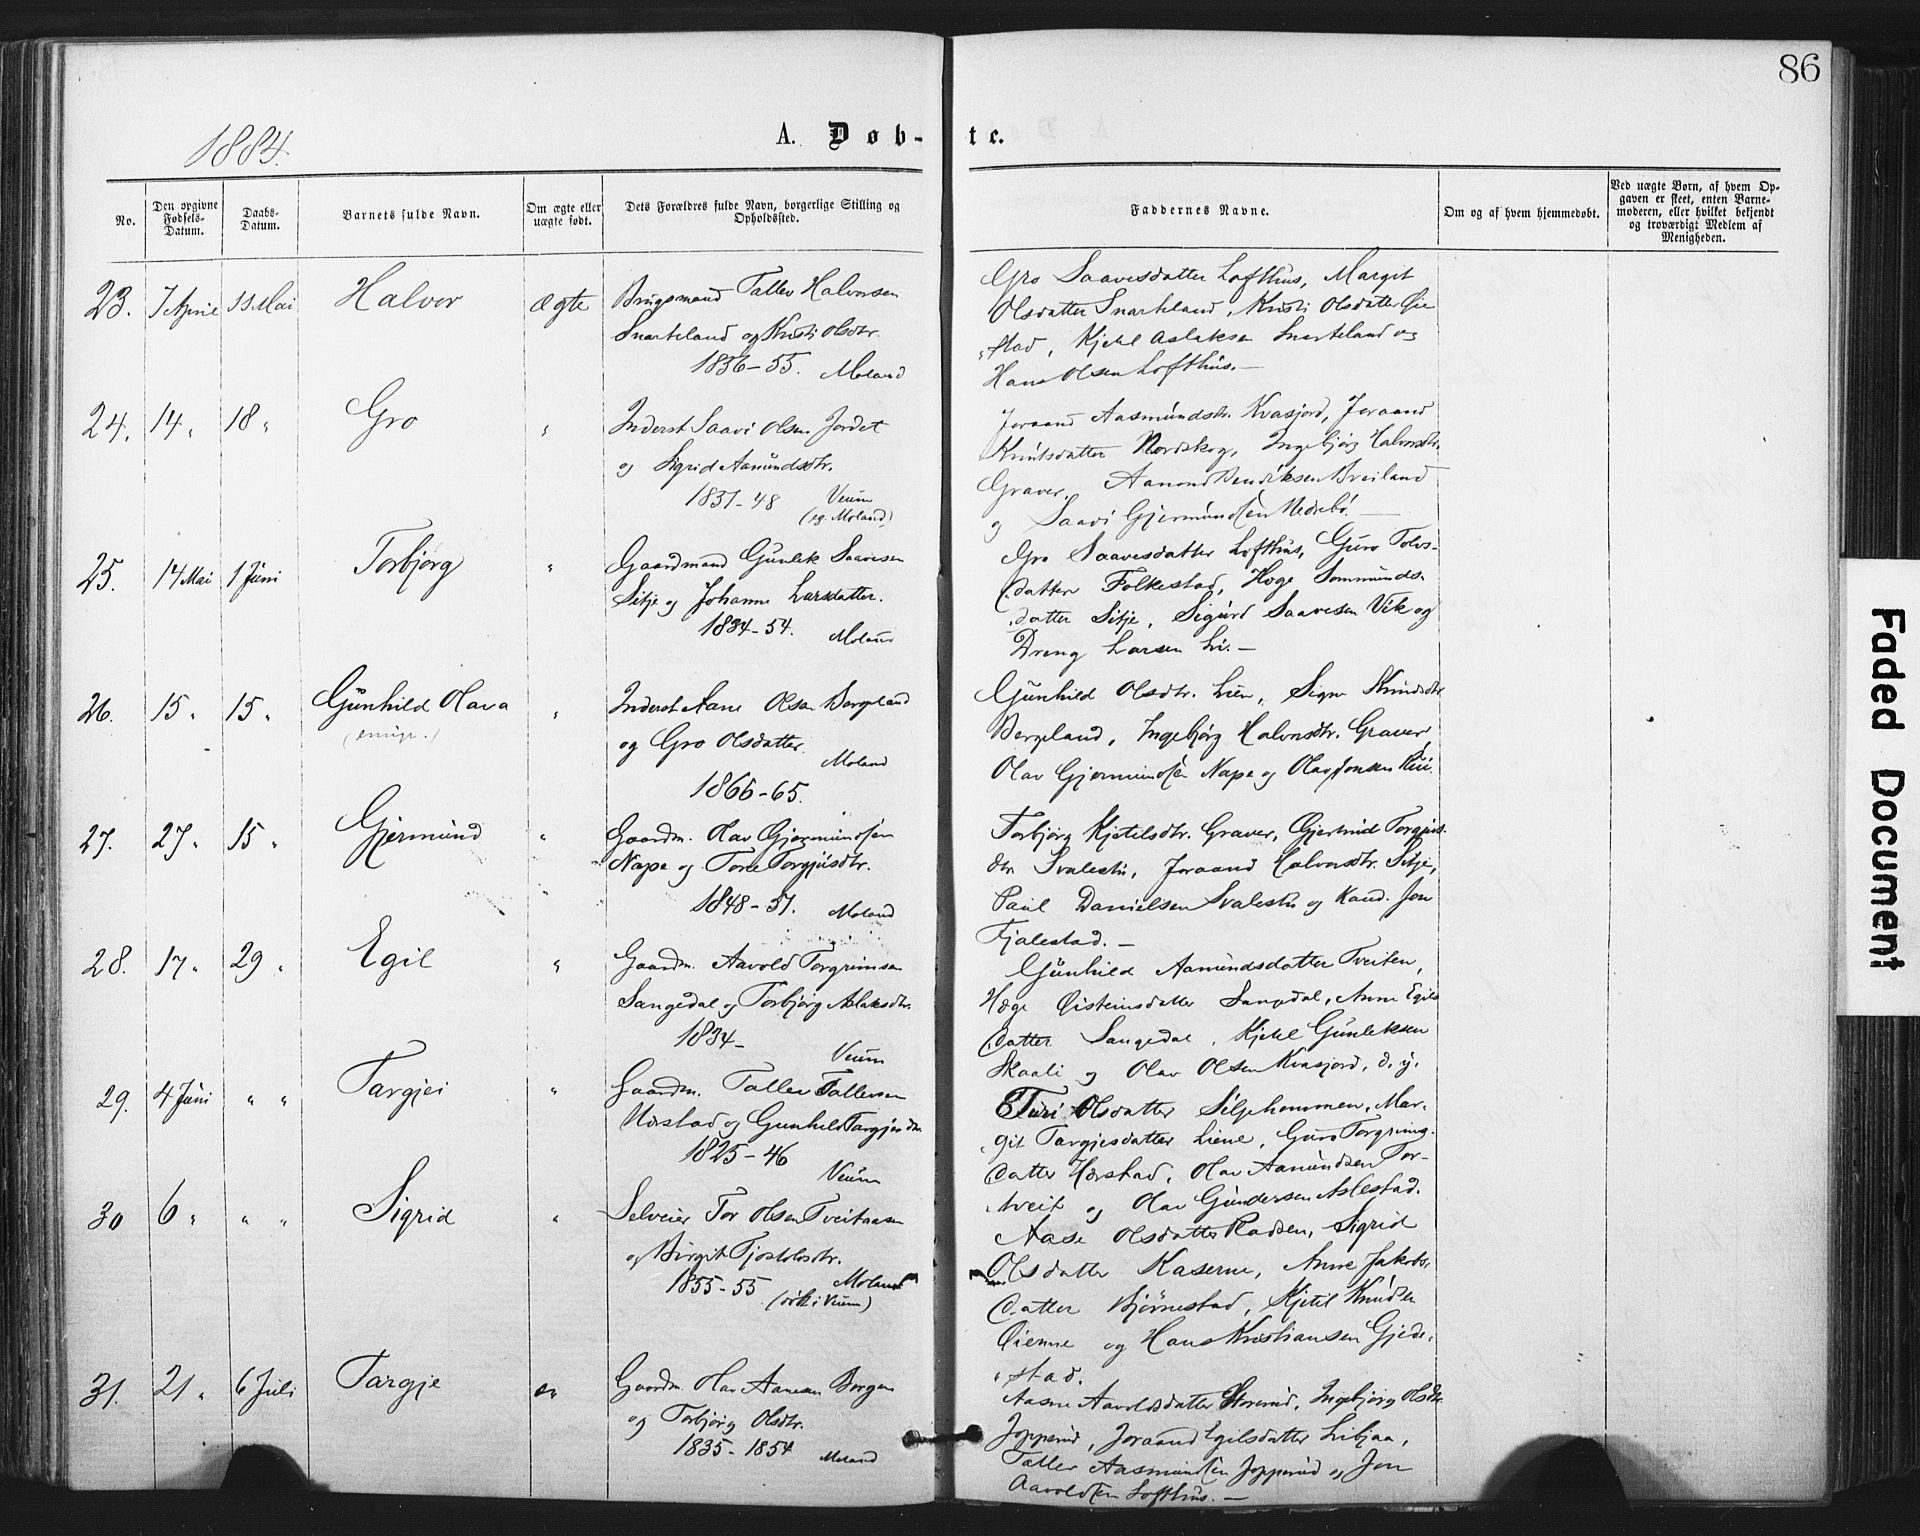 86
1884.
A. Døb-
te.
No.
Den opgivne Fødsels-Datum.
Daabs-Datum.
Barnets fulde Navn.
Om ægte eller uægte født.
Dets Forældres fulde Navn, borgerlige Stilling og Opholdssted.
Faddernes Navne.
Om og af hvem hjemmedøbt.
Ved uægte Børn, af hvem Opgaven er skeet, enten Barnemoderen, eller hvilket bekjendt og troværdigt Medlem af Menigheden.
23. 7 April 11 Mai Halvor Ægte
Brugsmand Tallev Halvorsen
Snarteland og Kristi Olsdtr.
1856-55. Moland
Gro Saavesdatter Lofthus, Margit
Olsdatter Snarteland, Kristi Olsdatter Øie
stad, Kjetil Aslaksen Snarteland og
Hans Olsen Lofthus.—
24. 14 " 18 " Gro "
Inderst Saavi Olsen Jordet
og Sigrid Aamundsdtr.
1851-48 Veum
(eg. Moland)
Joraand Aasmundsdtr. Kvasjord, Joraand
Knutsdatter Nordskog, Ingebjørg Halvorsdtr.
Graver, Aamond Bendiksen Breiland
og Saavi Gjermundsen Nedrebø.—
25. 14 Mai 1 Juni Torbjørg "
Gaardmand Gunlek Saavesen
Sitje og Johanne Larsdatter.
1834-54. Moland
Gro Saavesdatter Lofthus, Guro Tovs-
datter Folkestad, Hæge Sommunds-
datter Sitje, Sigurd Saavesen Vik og
Dreng Larsen Li.—
26. 15 " 15 " Gunhild Olava "
(emigr.)
Inderst Aane Olsen Bergland
og Gro Olsdatter.
Moland
1866-65.
Gunhild Olsdtr. Lien, Signe Knudsdtr
Bergland, Ingebjørg Halvorsdtr. Graver,
Olav Gjermundsen Nape og Olav Jonsen
27. 27 " 15 " Gjermund "
Gaardm. Olav Gjermundsen
Nape og Tone Torgjusdtr.
1848-51. Moland
Torbjørg Kjetilsdtr. Graver, Gjertrud Torgjus-
dtr Svalestu, Joraand Halvorsdtr. Sitje,
Paul Danielsen Svalestu og Kand. Jon
Fjalestad.—
28. 17 " 29 " Egil "
Gaardm. Aavold Torgrimsen
Sangedal og Torbjørg Aslaksdtr.
1834-
Veum
Gunhild Aamundsdatter Tveiten,
Hæge Øisteinsdatter Sangedal, Anne Egils
datter Sangedal, Kjetil Gunleksen
Skaali og Olav Olsen Kvasjord, d.y.
29. 4 Juni " " Targjei "
Gaardm. Tallev Tallevsen
Hørstad og Gunhild Targjesdtr
1825-46
Veum
Turi Olsdatter Siljehommen, Mar-
git Targjesdatter Liene, Guro Torgrims-
datter Hørstad, Olav Aamundsen Tor-
tveit og Olav Gundersen Aslestad.
30 6 " " " Sigrid "
Selveier Tor Olsen Tveitaasen
og Birgit Tjostolvsdtr.
1855-55 Moland
(døbt i Veum)
Aase Olsdatter Radsen, Sigrid
Olsdatter Kaserne, Anne Jakobs-
datter Bjørnestad, Kjetil Knudsen
Øienne og Hans Kristiansen Gjede-
stad.
31. 21 " 6 Juli Targje "
Gaardm. Olav Aanesen Borgen
og Torbjørg Olsdtr.
1835-1854 Moland
Aasne Aavoldsdatter Storerud, Ingebjørg Olsdtr.
Jopperud, Joraand Egilsdatter Libjaa,
Tallev Aasmundsen Jopperud og Jon
Aavoldsen Lofthus.—
Faded Document